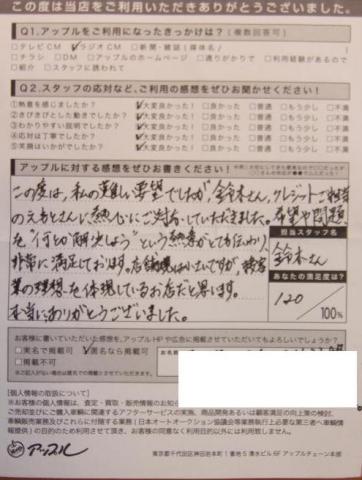 この度は当店をご利用いただきありがとうございました。
Q1.アップルをご利用になったきっかけは？(複数回答可)
□テレビCM ☑ラジオCM □新聞・雑誌(媒体名 )
□チラシ □DM □アップルのホームページ □通りがかりで □利用経験があるので
□紹介 □スタッフに誘われて
Q2.スタッフの応対など、ご利用の感想をぜひお聞かせください！
①熱意を感じましたか？ ☑大変良かった！ □良かった □普通 □もう少し □不満
②きびきびとした動きでしたか？ ☑大変良かった！ □良かった □普通 □もう少し □不満
③わかりやすい説明でしたか？ ☑大変良かった！ □良かった □普通 □もう少し □不満
④応対は丁寧でしたか？ ☑大変良かった！ □良かった □普通 □もう少し □不満
⑤笑顔はいかがでしたか？ ☑大変良かった！ □良かった □普通 □もう少し □不満
アップルに対する感想をぜひお書きください！
この度は、私の難しい要望でしたが、鈴木さん、クレジットご担当
のえもとさんに熱心にご対応していただきました。希望や問題
を"何とか解決しよう"という熱意がとても伝わり、
非常に満足しております。店舗規模は小さいですが、接客
業の理想を体現しているお店だと思います。
本当にありがとうございました。
担当スタッフ名
鈴木さん
あなたの満足度は？
120
/100%
お客様に書いていただいた感想を、アップルHPや広告に掲載させていただいてもよろしいでしょうか？
□実名で掲載可 ☑匿名なら掲載可
□掲載不可
※ご記入がない場合は匿名での掲載とさせていただきます。
[個人情報の取扱について]
※お客様の個人情報は、査定・買取・販売情報のお知ら
ご売却並びにご購入車輌に関連するアフターサービスの実施、商品開発あるいは顧客満足の向上策の検討、
車輌販売業務及びこれらに付随する業務(日本オートオークション協議会等業務執行上必要な第三者へ車輌情
報提供)の目的のため利用させて頂き、お客様の同意なく利用目的以外には利用致しません。
アップル
東京都千代田区神田岩本町1番地5 清水ビル6F アップルチェーン本部